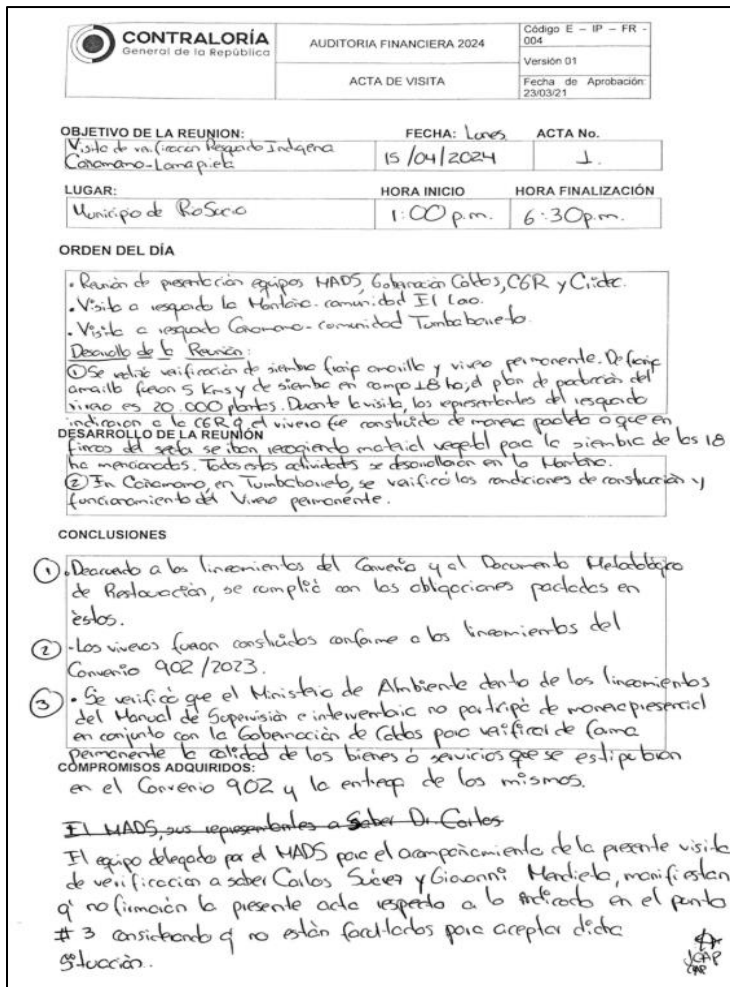 CONTRALORÍA
General de la República
AUDITORIA FINANCIERA 2024
ACTA DE VISITA
Código E – IP – FR -
004
Versión 01
Fecha de Aprobación:
23/03/21
OBJETIVO DE LA REUNION:
Visita de verificación Resguardo Indígena
Cañamomo-Lomaprieta
FECHA: Lunes
15/04/2024
ACTA No.
1.
LUGAR:
Municipio de RioSucio
HORA INICIO
1:00 p.m.
HORA FINALIZACIÓN
6:30 p.m.
ORDEN DEL DÍA
• Reunión de presentación equipos MADS, Gobernación Caldas, CGR y
• Visita a resguardo la Montaña - comunidad El Lao.
• Visita a resguardo Cañamomo - comunidad Tumbabarreto.
Desarrollo de la Reunión:
① Se realizó verificación de siembra franja amarilla y vivero permanente. De franja
amarilla fueron 5 Kms y de siembra en campo 18 ha, el plan de producción del
vivero es 20.000 plantas. Durante la visita, los representantes del resguardo
indicaron a la CGR q el vivero fue construido de manera paralela a que en
DESARROLLO DE LA REUNIÓN
fincas del se iban recogiendo material vegetal para la siembra de las 18
ha mencionadas. Todas estas actividades se desarrollaron en la Montaña.
② En Cañamomo, en Tumbabarreto, se verificó las condiciones de construcción y
funcionamiento del Vivero permanente.
CONCLUSIONES
① • Deacuerdo a los lineamientos del Convenio y al Documento Metodológico
de Restauración, se cumplió con las obligaciones pactadas en
éstos.
② - Los viveros fueron construidos conforme a los lineamientos del
Convenio 902/2023.
③ • Se verificó que el Ministerio de Ambiente dentro de los lineamientos
del Manual de Supervisión e interventoria no participó de manera presencial
en conjunto con la Gobernación de Caldas para verificar de forma
permanente la calidad de los bienes ó servicios que se estipulaban
COMPROMISOS ADQUIRIDOS:
en el Convenio 902 y la entrega de los mismos.
El MADS, sus representantes a Saber Dr. Carlos
El equipo delegado por el MADS para el acompañamiento de la presente visita
de verificación a saber Carlos Suárez y Giovanni Mendieta, manifiestan
q' no firmarán la presente acta respecto a lo indicado en el punto
# 3 considerando q' no están facultados para aceptar dicha
situación.
JCAP